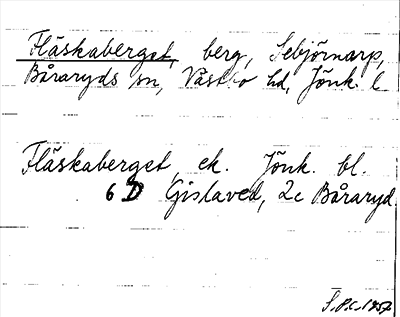 Fläskaberget, berg, Sebjörnarp,
Båraryds sn, Västbo hd, Jönk. l
Fläskaberget, ek. Jönk. bl.
6 D Gislaved, 2c Båraryd